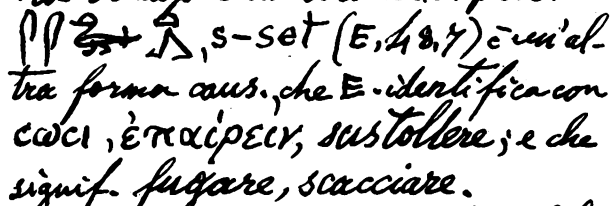 s-set (E, 48, 7) è un'al-
tra forma caus., che E. identifica con
ⲥⲱⲥⲓ, ἐπαίρειν, sustollere; e che
signif. fugare, scacciare.